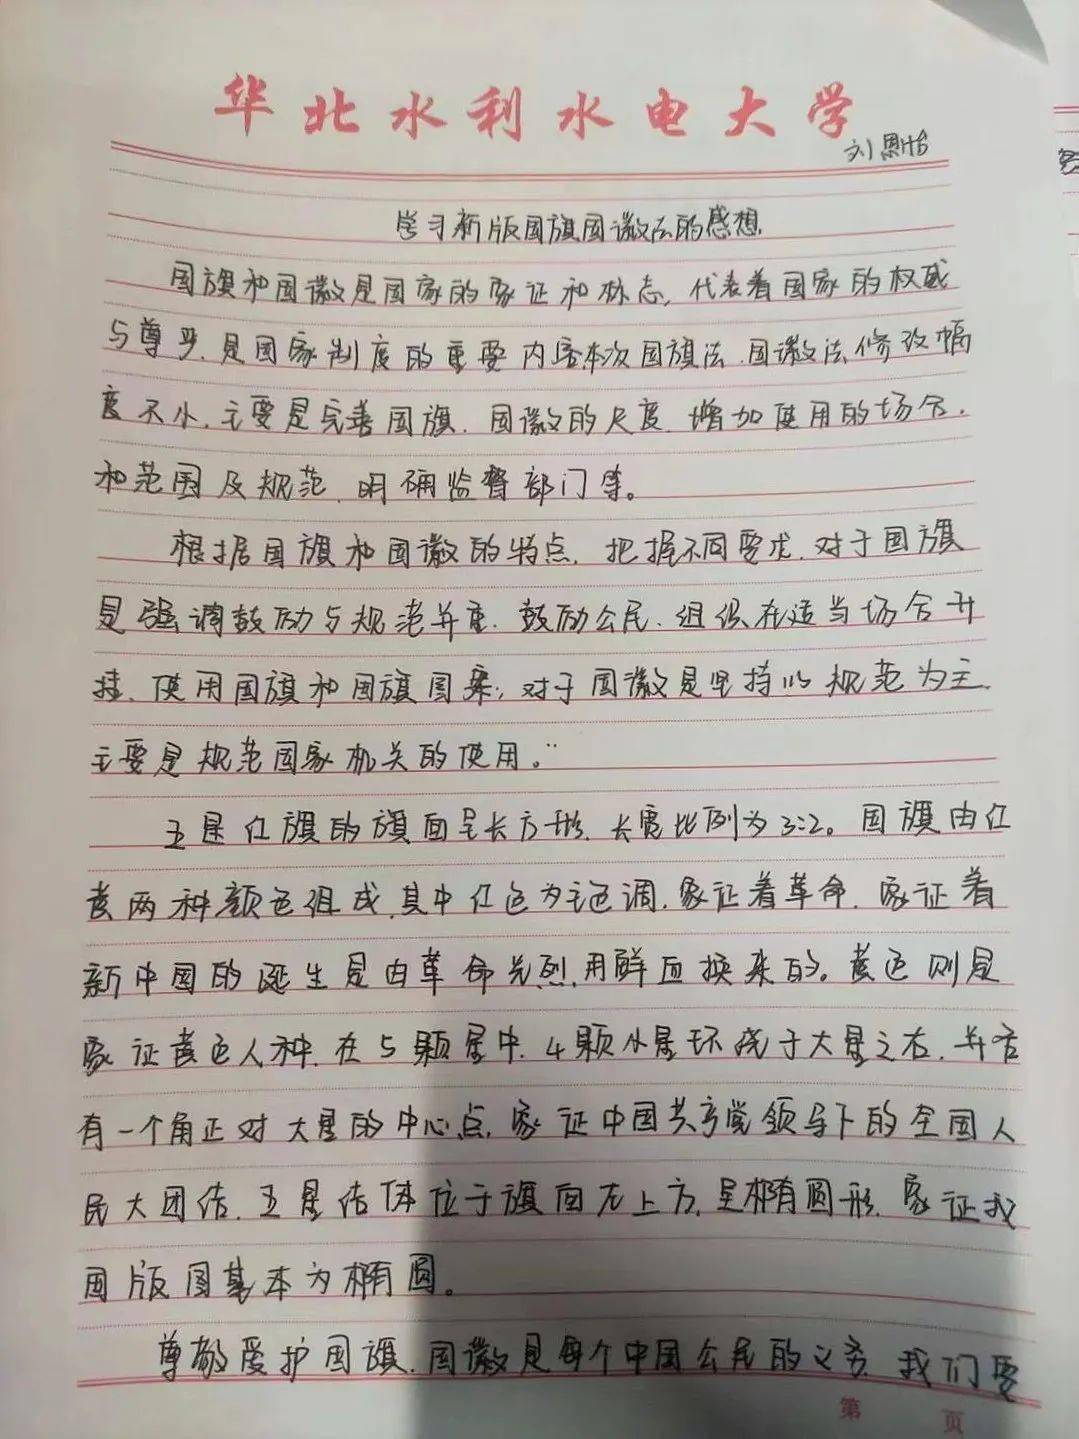 华北水利水电大学
刘恩怡
学习新版国旗国徽法的感想.
国旗和国徽是国家的象征和标志,代表着国家的权威
与尊严,是国家制度的重要内容本次国旗法.国徽法修改幅
度不小,主要是完善国旗.国徽的尺度.增加使用的场合.
和范围及规范,明确监督部门等。
根据国旗和国徽的特点,把握不同要求,对于国旗
是强调鼓励与规范并重.鼓励公民.组织在适当场合升
挂、使用国旗和国旗图案;对于国徽是坚持以规范为主.
主要是规范国家机关的使用。¨
五星红旗的旗面呈长方形,长宽比例为3:2。国旗由红
黄两种颜色组成,其中红色为主色调,象征着革命,象征着
新中国的诞生是由革命先烈用鲜血换来的。黄色则是
象征黄色人种,在5颗星中,4颗小星环绕于大星之右,并各
有一个角正对大星的中心点,象征中国共产党领导下的全国人
民大团结,五星结体位于旗面左上方,呈椭圆形,象征我
国版图基本为椭圆。
尊敬爱护国旗.国徽是每个中国公民的义务,我们要
第 页